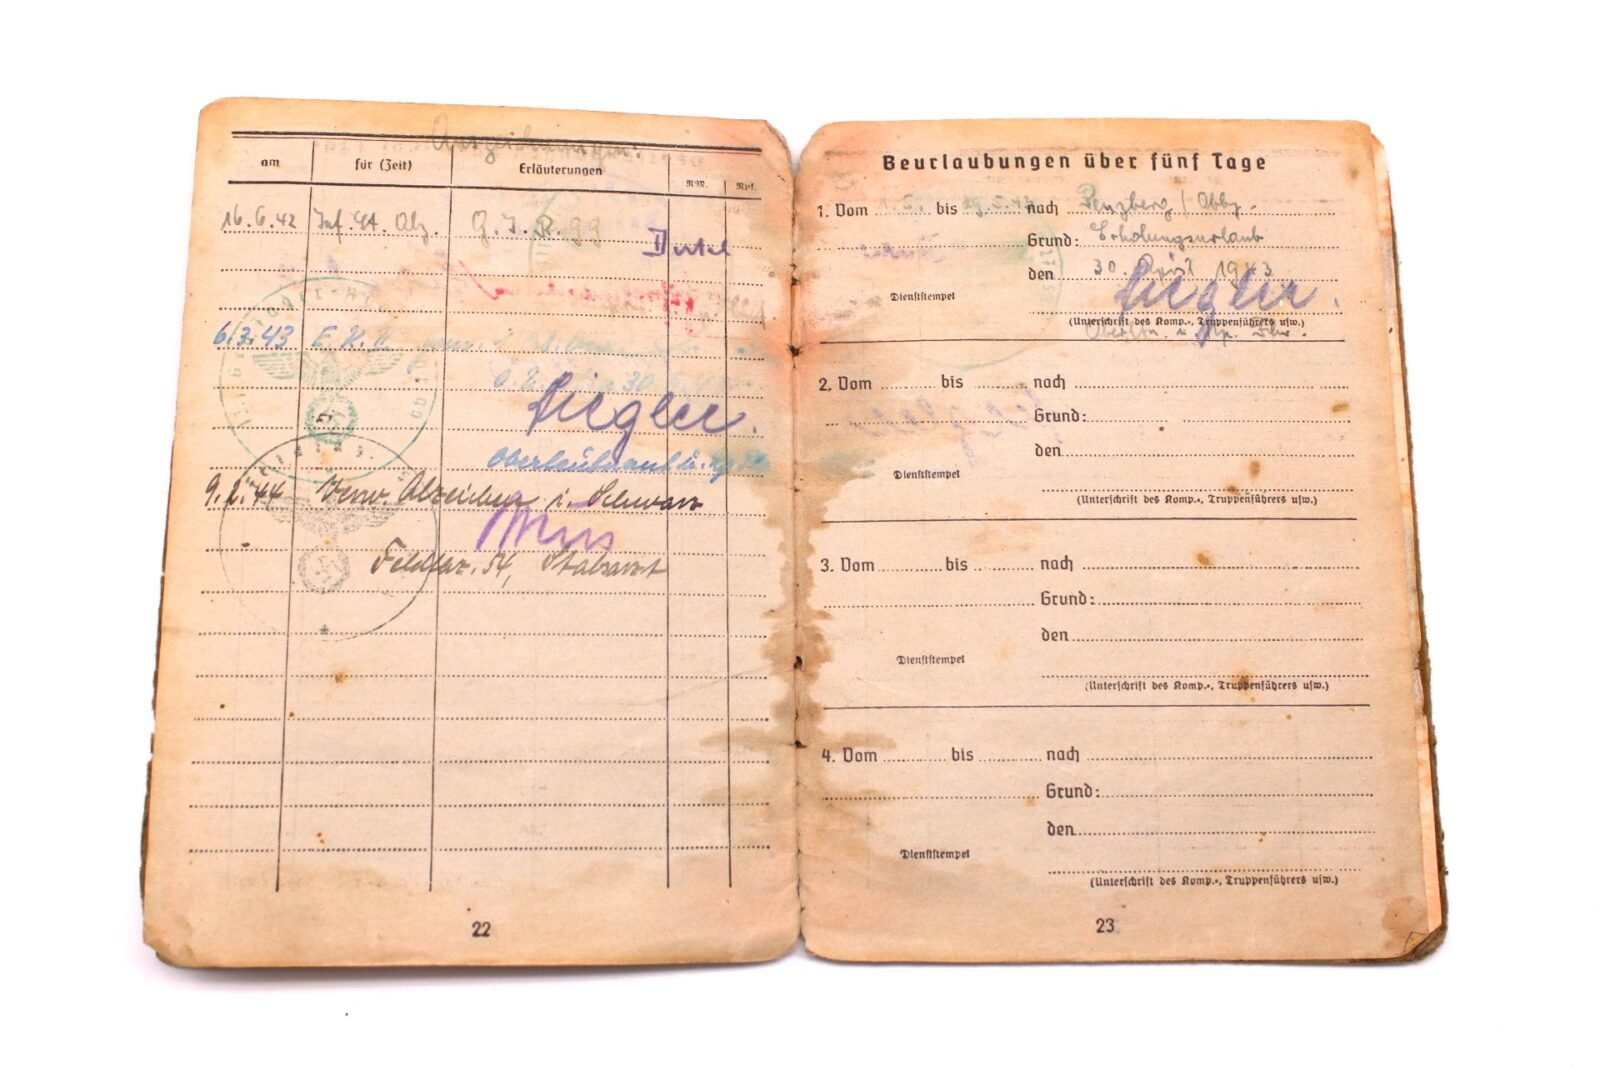 Auszeichnungen:
am für (Zeit) Erläuterungen RM. Rpf.
16.6.42 Inf. St. Abz. G. J. R. 99
6.3.43 E. K. II
Ziegler.
Oberleutnant u.
9.2.44 Verw. Abzeichen i. Schwarz
Feldlaz. 54, Stabsarzt
22
Beurlaubungen über fünf Tage
1. Vom bis nach Penzberg / Obby.
Grund: Erholungsurlaub
den 30. April 1943
Ziegler.
Dienststempel
(Unterschrift des Komp.-, Truppenführers usw.)
2. Vom bis nach
Grund:
den
Dienststempel
(Unterschrift des Komp.-, Truppenführers usw.)
3. Vom bis nach
Grund:
den
Dienststempel
(Unterschrift des Komp.-, Truppenführers usw.)
4. Vom bis nach
Grund:
den
Dienststempel
(Unterschrift des Komp.-, Truppenführers usw.)
23